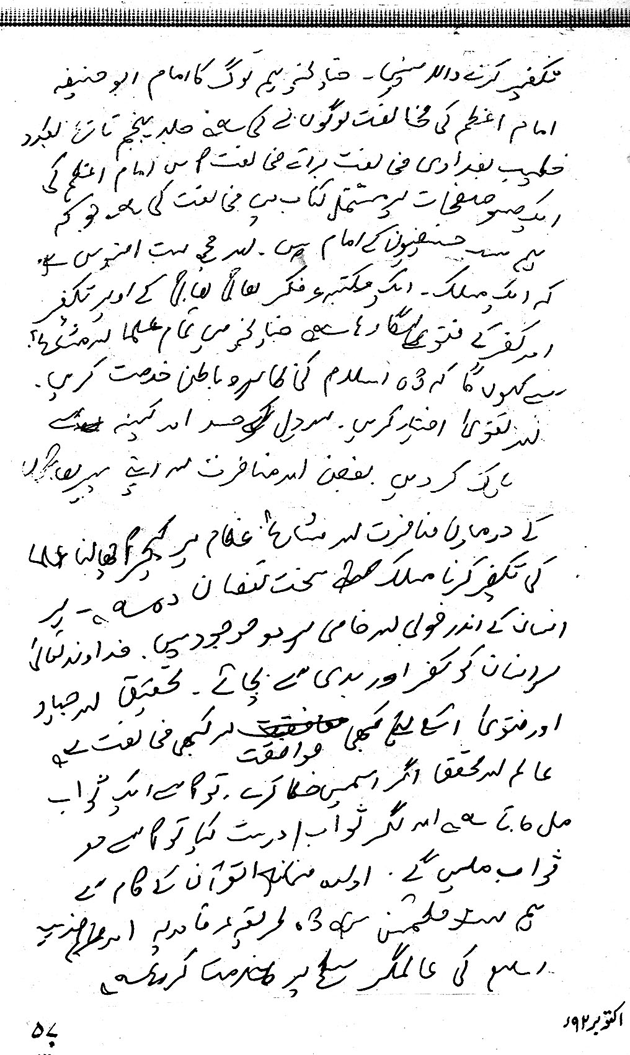 تکفیر کرنے والا سنیں۔ چنانچہ ہم لوگ کا امام ابو حنیفہ
امام اعظم کی مخالفت لوگوں نے کی ہے جلد پنجم تاریخ بغداد
خطیب بغدادی مخالفت برائے مخالفت میں امام اعظم کی
ایک سو صفحات پر مشتمل کتاب میں مخالفت کی ہے جو کہ
ہم سب حنفیوں کے امام ہیں۔ اور مجھے بہت افسوس ہے
کہ ایک مسلک۔ ایک مکتبہ فکر بھائی بھائی کے اوپر تکفیر
اور کفر کے فتویٰ لگا رہا ہے چنانچہ میں تمام علما اور مشائخ
سے کہوں گا کہ وہ اسلام کی ظاہر و باطن خدمت کریں۔
اور تقویٰ اختیار کریں۔ اور دل کو حسد اور کینہ سے
پاک کر دیں بغض اور منافرت اور اپنے پیر بھائیوں
کے درمیان منافرت اور مشائخ عظام پر کیچڑ اچھالنا علما
کی تکفیر کرنا مسلک سخت نقصان دہ ہے۔ ہر
انسان کے اندر خوبی اور خامی ہر دو موجود ہیں۔ خداوند تعالیٰ
ہر انسان کو کفر اور بدی سے بچائے۔ تحقیق اور جہاد
اور فتویٰ اسکے لیے کبھی موافقت اور کبھی مخالفت ہے
عالم اور محقق اگر اسمیں خطا کرے۔ تو اسے ایک ثواب
مل جاتا ہے اور اگر ثواب / درست کیا تو اسے دو
ثواب ملیں گے۔ ادارہ منہاج القرآن کے کام سے
ہم سب مطمئن ہیں وہ طریقہ قادریہ اور مذہب
اسلام کی عالمگیر سطح پر خدمت کر رہا ہے
اکتوبر ۹۲ء
۵۷